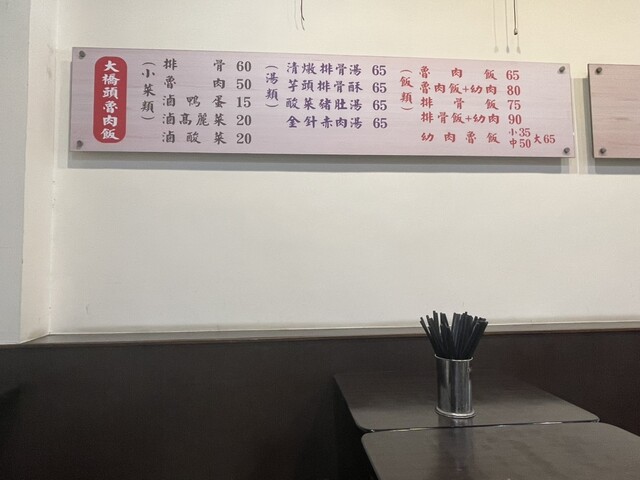 大橋頭魯肉飯
(小菜類)
排骨 60
魯肉 50
滷鴨蛋 15
滷高麗菜 20
滷酸菜 20
(湯類)
清燉排骨湯 65
芋頭排骨酥 65
酸菜豬肚湯 65
金針赤肉湯 65
(飯類)
魯肉飯 65
魯肉飯+幼肉 80
排骨飯 75
排骨飯+幼肉 90
幼肉魯飯 小35 中50 大65